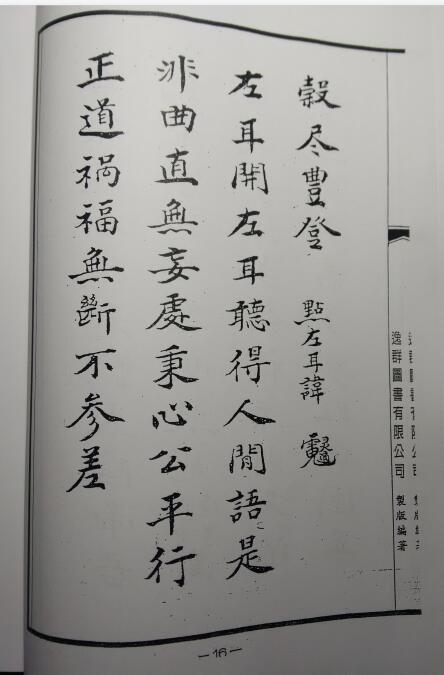 穀尽豐登 點左耳諱
左耳開左耳聽得人間語是
非曲直無妄處秉心公平行
正道祸福無斷不参差
逸群圖書有限公司 製版編著
—16—